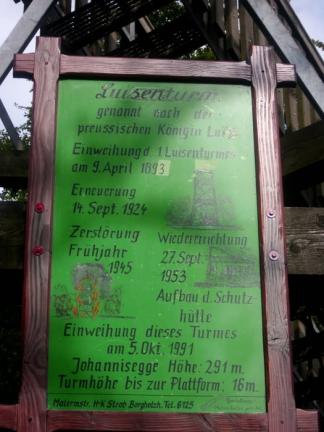 Luisenturm
genannt nach der
preussischen Königin Luise
Einweihung d. 1. Luisenturmes
am 9. April 1893
Erneuerung
14. Sept. 1924
Zerstörung
Frühjahr
1945
Wiedererrichtung
27. Sept.
1953
Aufbau d. Schutz-
hütte
Einweihung dieses Turmes
am 5. Okt. 1991
Johannisegge Höhe: 291 m.
Turmhöhe bis zur Plattform: 16 m.
Malermstr. H+K Strob Borgholzh. Tel. 6125